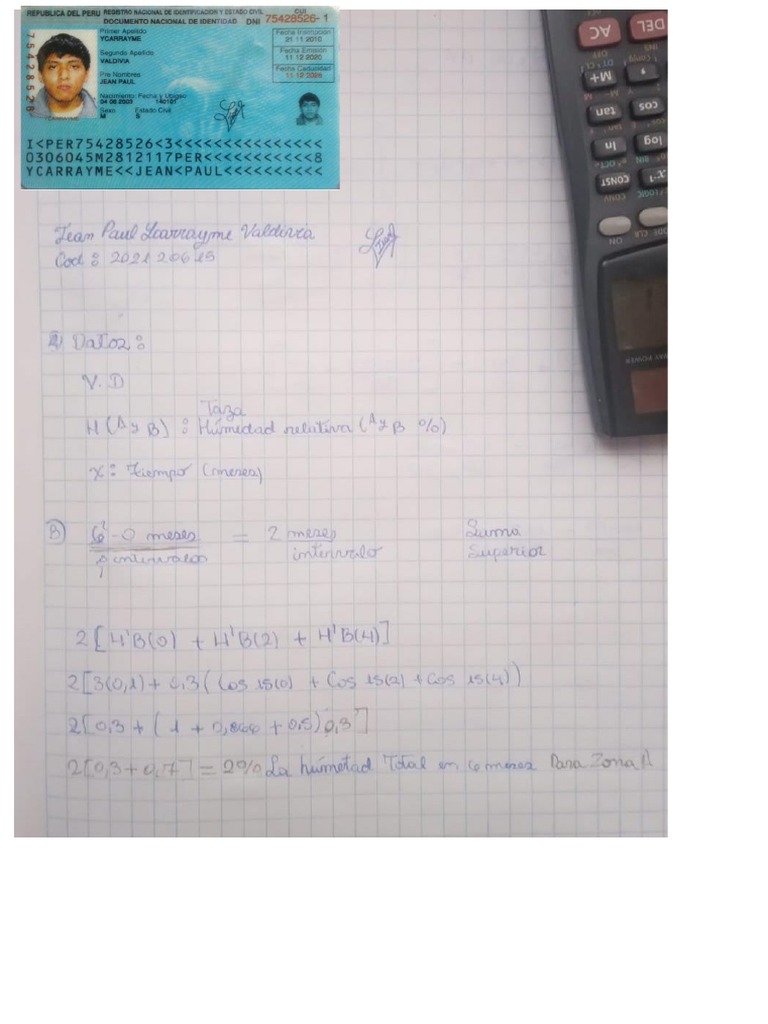 REPUBLICA DEL PERU REGISTRO NACIONAL DE IDENTIFICACION Y ESTADO CIVIL
DOCUMENTO NACIONAL DE IDENTIDAD DNI
CUI
75428526-1
Primer Apellido
YCARRAYME
Segundo Apellido
VALDIVIA
Pre Nombres
JEAN PAUL
Nacimiento: Fecha y Ubigeo
140101
Sexo Estado Civil
M S
Fecha Inscripción
21 11 2010
Fecha Emisión
11 12 2020
Fecha Caducidad
11 12 2028
75428526
YCARRAYME
I<PER75428526<3<<<<<<<<<<<<<<<
0306045M2812117PER<<<<<<<<<<<8
YCARRAYME<<JEAN<PAUL<<<<<<<<<<
Jean Paul Ycarrayme Valdivia
Cod: 202120615
A) Datos:
V.D
Taza
H(A y B): Húmedad relativa (A y B %)
x: Tiempo (meses)
B) 6-0 meses = 2 meses
intervalos intervalo
Suma
Superior
2[H'B(0) + H'B(2) + H'B(4)]
2[3(0,1)+ 0,3(Cos 15(0) + Cos 15(2) + Cos 15(4))
2[0,3 + (1 + 0,866 + 0,5)0,3]
2[0,3+0,7] = 2% La húmetad Total en 6 meses Para Zona
DEL
AC
M+
cos
tan
log
ln
CONST
x⁻¹
ON